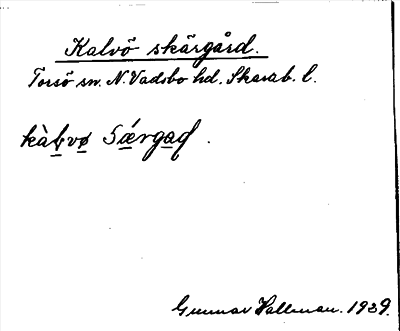 Kalvö skärgård.
Torsö sn. N. Vadsbo hd. Skarab. l.
Gunnar Hallman. 1939.